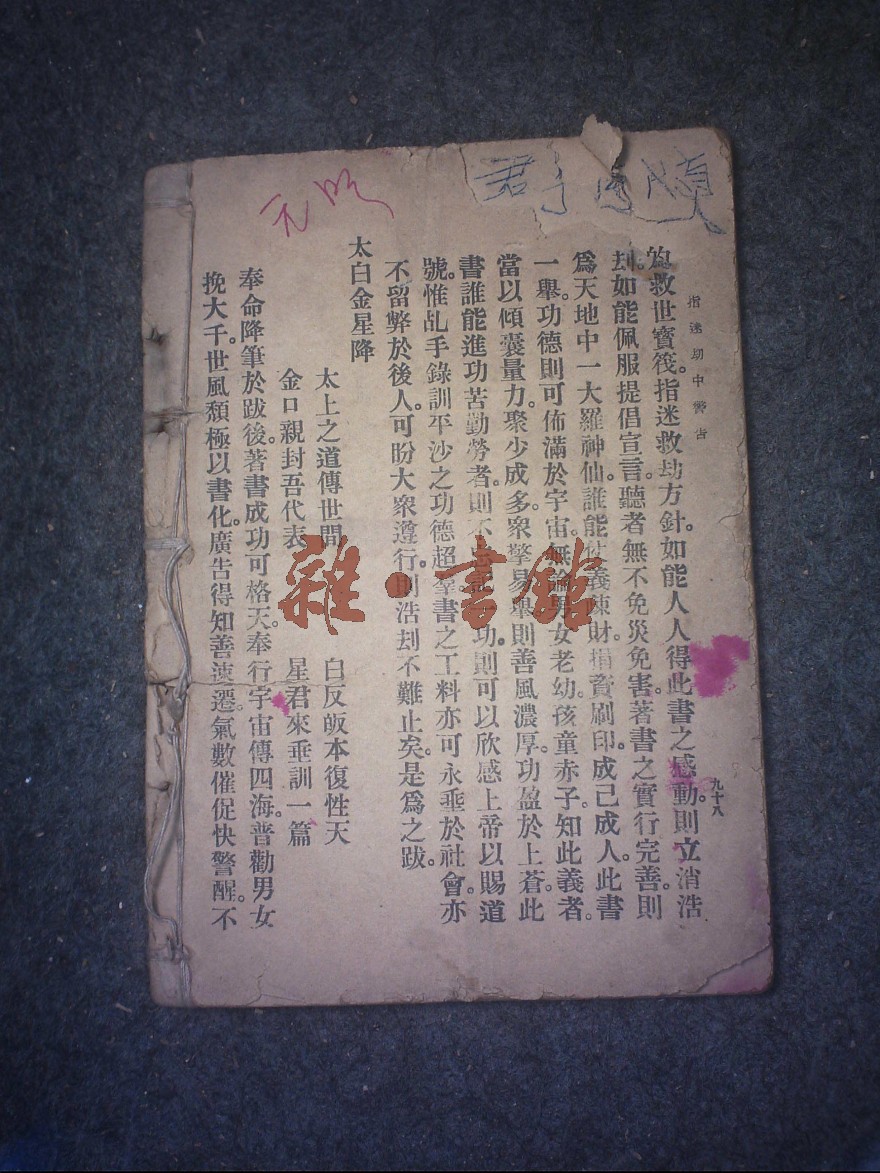 指迷刧中警告
九十八
救世寶筏。指迷救刧方針。如能人人得此書之感動。則立消浩
刦。如能佩服提倡宣言。聽者無不免災免害。著書之實行完善。則
爲天地中一大羅神仙。誰能仗義疎財。捐資刷印。成己成人。此書
一舉。功德則可佈滿於宇宙。無論男女老幼。孩童赤子。知此義者。
當以傾囊量力。聚少成多。衆擎易舉。則善風濃厚。功盈於上蒼。此
書誰能進功苦勤勞者。則不 功。則可以欣感上帝以賜道
號。惟乩手錄訓平沙之功德超羣。書之工料亦可永垂於社會。亦
不留弊於後人。可盼大衆遵行。則浩刦不難止矣。是爲之跋。
太白金星降
太上之道傳世間 白反皈本復性天
金口親封吾代表 星君來垂訓一篇
奉命降筆於跋後。著書成功可格天。奉行宇宙傳四海。普勸男女
挽大千。世風頹極以書化。廣告得知善速遷。氣數催促快警醒。不
雜·書館